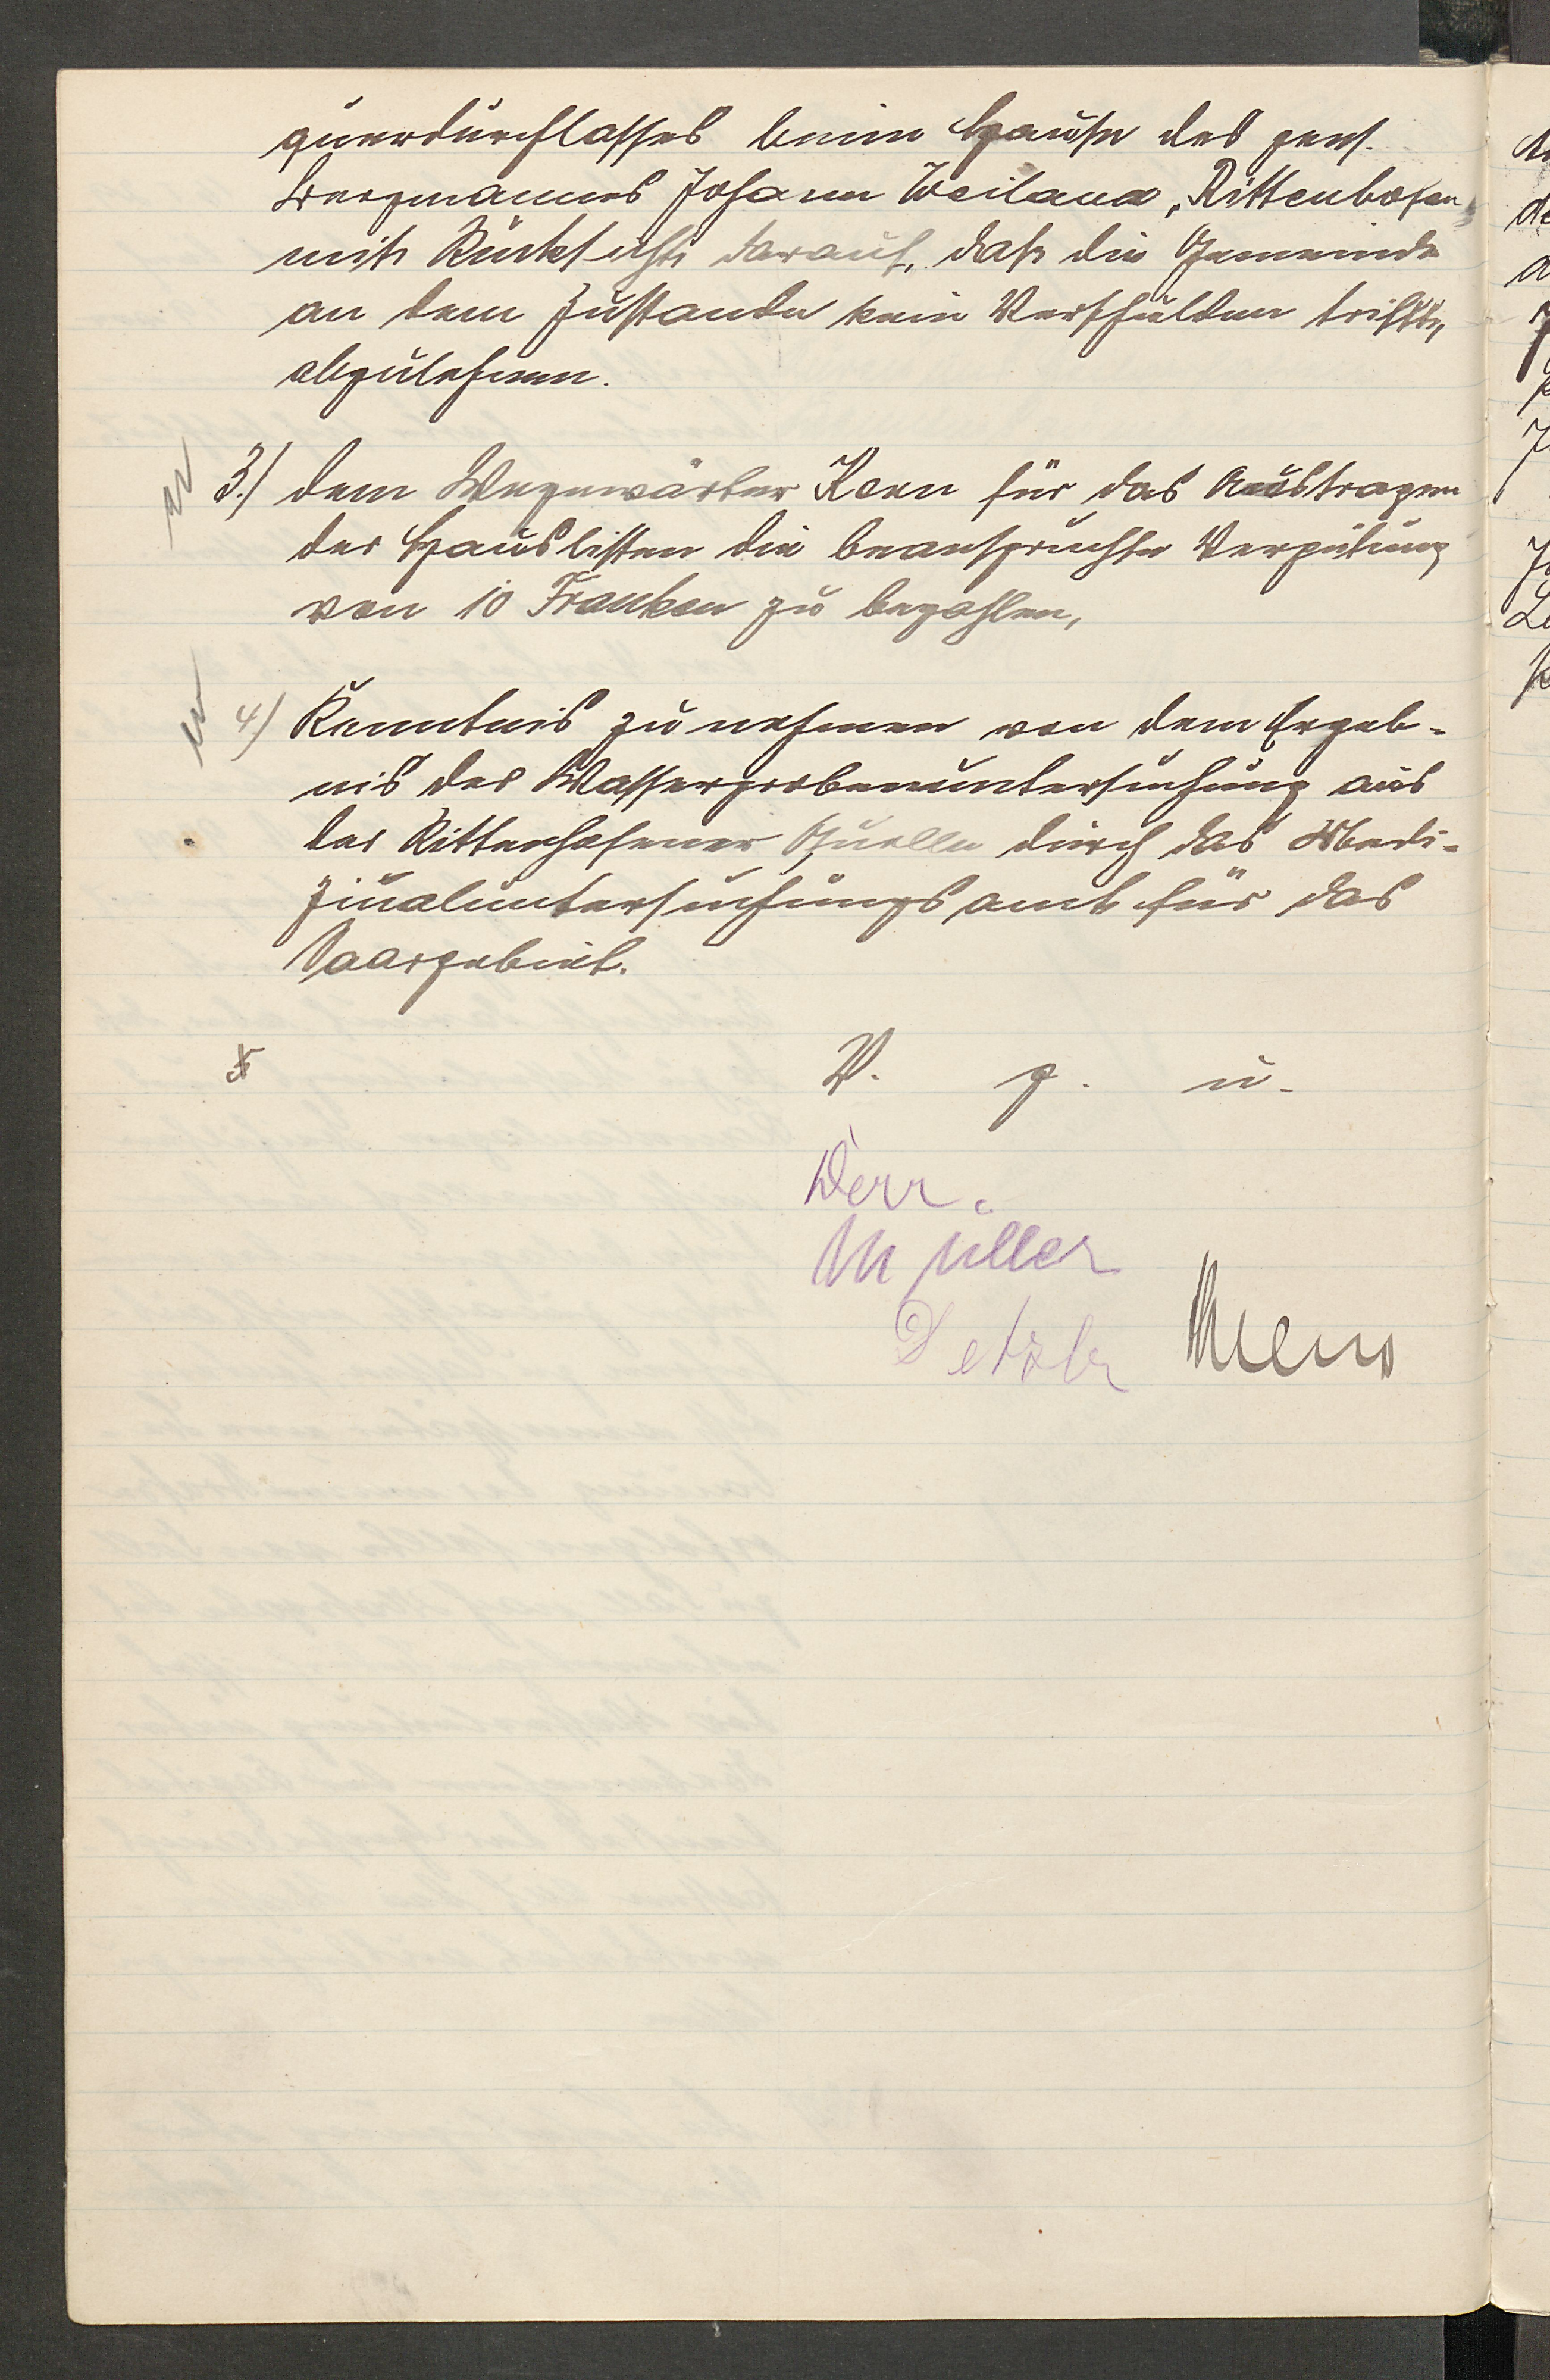 querdurchlasses beim Hause des pens.
Bergmannes Johann Weiland, Rittenhofen,
mit Rücksicht darauf, daß die Gemeinde
an dem Zustande kein Verschulden trifft,
abzulehnen.
3.) dem Wegewärter Korn für das Austragen
der Hauslisten die beanspruchte Vergütung
von 10 Franken zu bezahlen,
4) Kenntnis zu nehmen von dem Ergeb-
nis der Wasserprobenuntersuchung aus
der Rittenhofener Quelle durch das Medi-
zinaluntersuchungsamt für das
Saargebiet.
V. g. u.
Derr.
Müller
Detzler